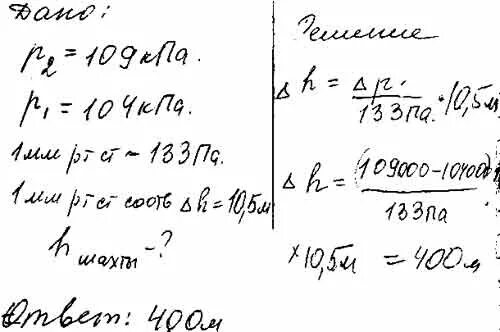 Дано:
p₂ = 109кПа.
p₁ = 104кПа.
1мм рт ст – 133Па.
1мм рт ст соотв Δh = 10,5м
h шахты – ?
Решение
Δh = Δp / 133Па · 10,5м
Δh = (109000 – 104000) / 133Па
× 10,5м = 400м
Ответ: 400м